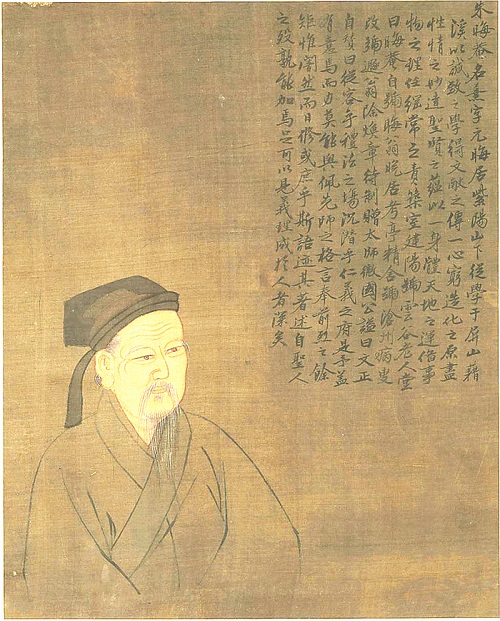 朱晦菴名熹字元晦居紫陽山下從學于屏山藉
溪以誠致之學得文獻之傳一心窮造化之原盡
性情之妙達聖賢之蘊以一身體天地之運備事
物之理任綱常之責築室建陽號雲谷老人堂
曰晦菴自號晦翁晚居考亭精舍號滄州病叟
改號遯翁除煥章待制贈太師徽國公謚曰文正
自贊曰從容乎禮法之場沉潛乎仁義之府是予蓋
有意焉而力莫能與佩先師之格言奉前烈之餘
矩惟闇然而日修或庶乎斯語跡其著述自聖人
之歿孰能加焉可以見義理成於人者深矣